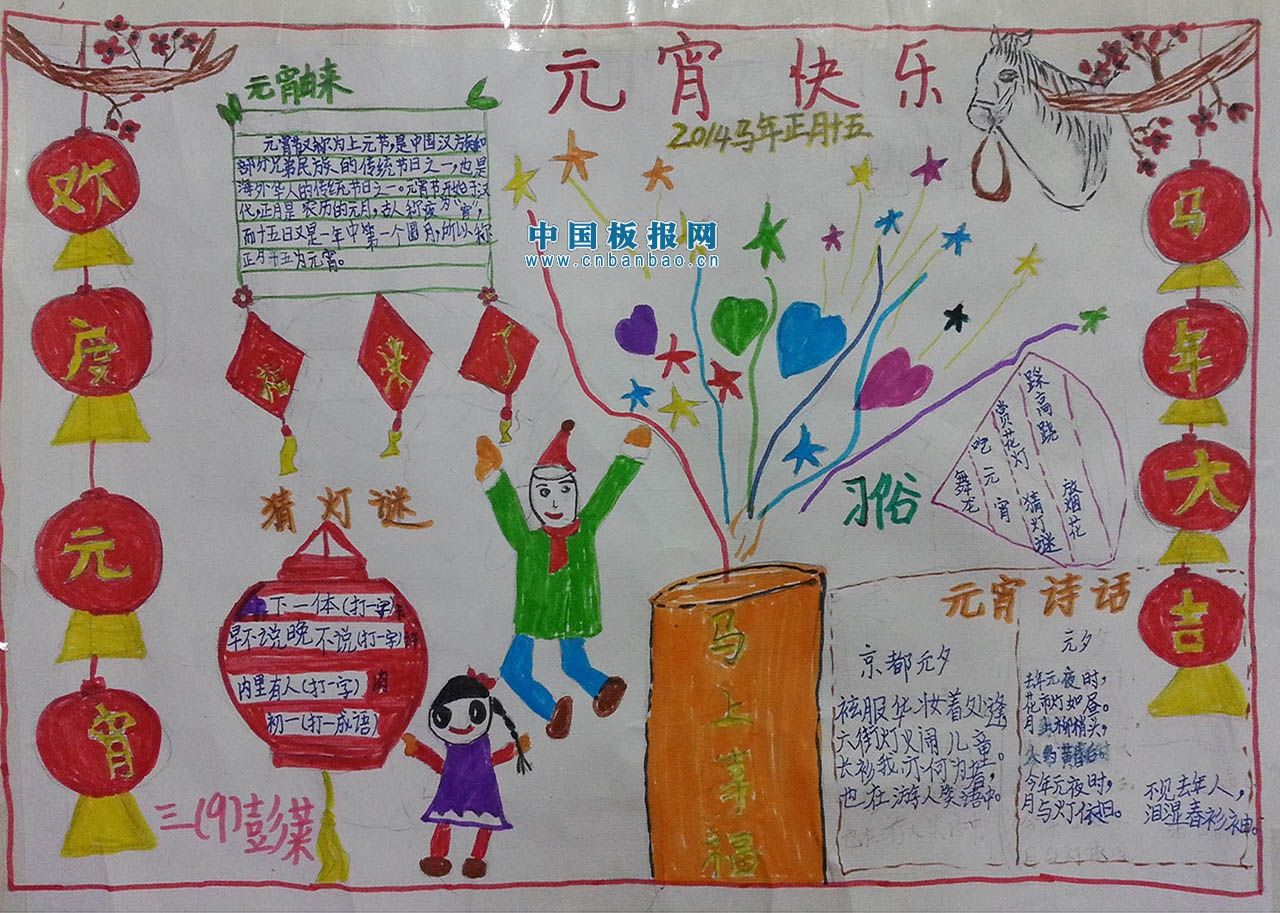 元宵快乐
2014马年正月十五
欢度元宵
元宵由来
元宵节又称为上元节,是中国汉族和
部分兄弟民族的传统节日之一,也是
海外华人的传统节日之一。元宵节开始于汉
代,正月是农历的元月,古人称夜为“宵”,
而十五日又是一年中第一个圆月,所以称
正月十五为元宵。
中国板报网
www.cnbanbao.cn
福来了
猜灯谜
下一体(打一字)
早不说晚不说(打一字)
内里有人(打一字) 肉
初一(打一成语)
三(9)彭菜
马上幸福
习俗
舞龙
吃元宵
赏花灯 猜灯谜
踩高跷 放烟花
元宵诗话
京都元夕
袨服华妆着处逢
六街灯火闹儿童。
长衫我亦何为者,
也在游人笑语中。
元夕
去年元夜时,
花市灯如昼。
月上柳梢头,
人约黄昏后。
今年元夜时,
月与灯依旧。
不见去年人,
泪湿春衫袖。
马年大吉